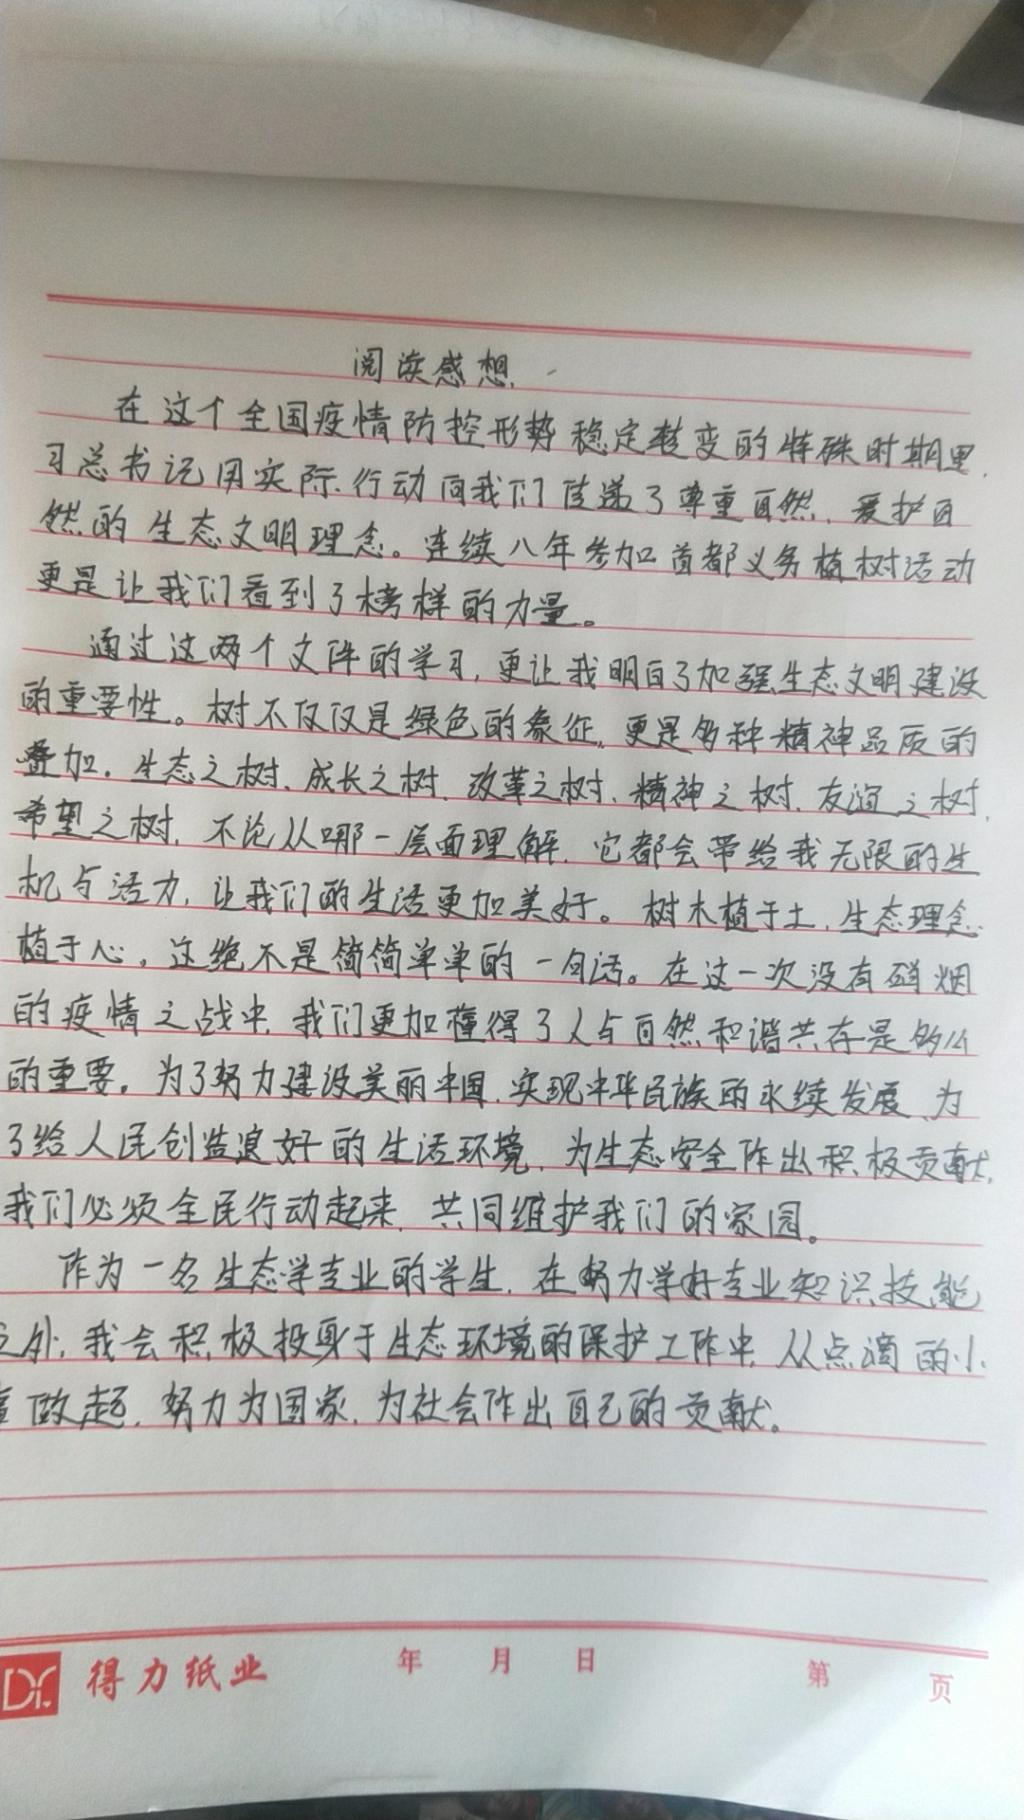 阅读感想
在这个全国疫情防控形势稳定转变的特殊时期里，
习总书记用实际行动向我们传递了尊重自然、爱护自
然的生态文明理念。连续八年参加首都义务植树活动
更是让我们看到了榜样的力量。
通过这两个文件的学习，更让我明白了加强生态文明建设
的重要性。树不仅仅是绿色的象征，更是多种精神品质的
叠加。生态之树、成长之树、改革之树、精神之树、友谊之树、
希望之树，不论从哪一层面理解，它都会带给我无限的生
机与活力，让我们的生活更加美好。树木植于土，生态理念
植于心，这绝不是简简单单的一句话。在这一次没有硝烟
的疫情之战中，我们更加懂得了人与自然和谐共存是多么
的重要。为了努力建设美丽中国，实现中华民族的永续发展、为
了给人民创造良好的生活环境，为生态安全作出积极贡献，
我们必须全民行动起来，共同维护我们的家园。
作为一名生态学专业的学生，在努力学好专业知识技能
之外，我会积极投身于生态环境的保护工作中，从点滴的小
事做起，努力为国家，为社会作出自己的贡献。
得力纸业 年 月 日 第 页